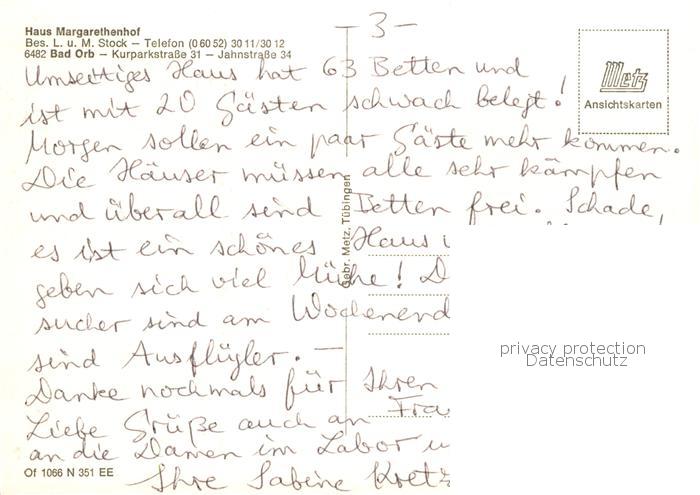 - 3 -
Haus Margarethenhof
Bes. L. u. M. Stock – Telefon (0 60 52) 30 11/30 12
6482 Bad Orb – Kurparkstraße 31 – Jahnstraße 34
Metz
Ansichtskarten
Umseitiges Haus hat 63 Betten und
ist mit 20 Gästen schwach belegt!
Morgen sollen ein paar Gäste mehr kommen.
Die Häuser müssen alle sehr kämpfen
und überall sind Betten frei. Schade,
es ist ein schönes Haus
geben sich viel Mühe! D
sucher sind am Wochenend
sind Ausflügler. —
Danke nochmals für Ihren
Liebe Grüße auch an Frau
an die Damen im Labor u
Ihre Sabine Kretz
Gebr. Metz, Tübingen
Of 1066 N 351 EE
privacy protection
Datenschutz